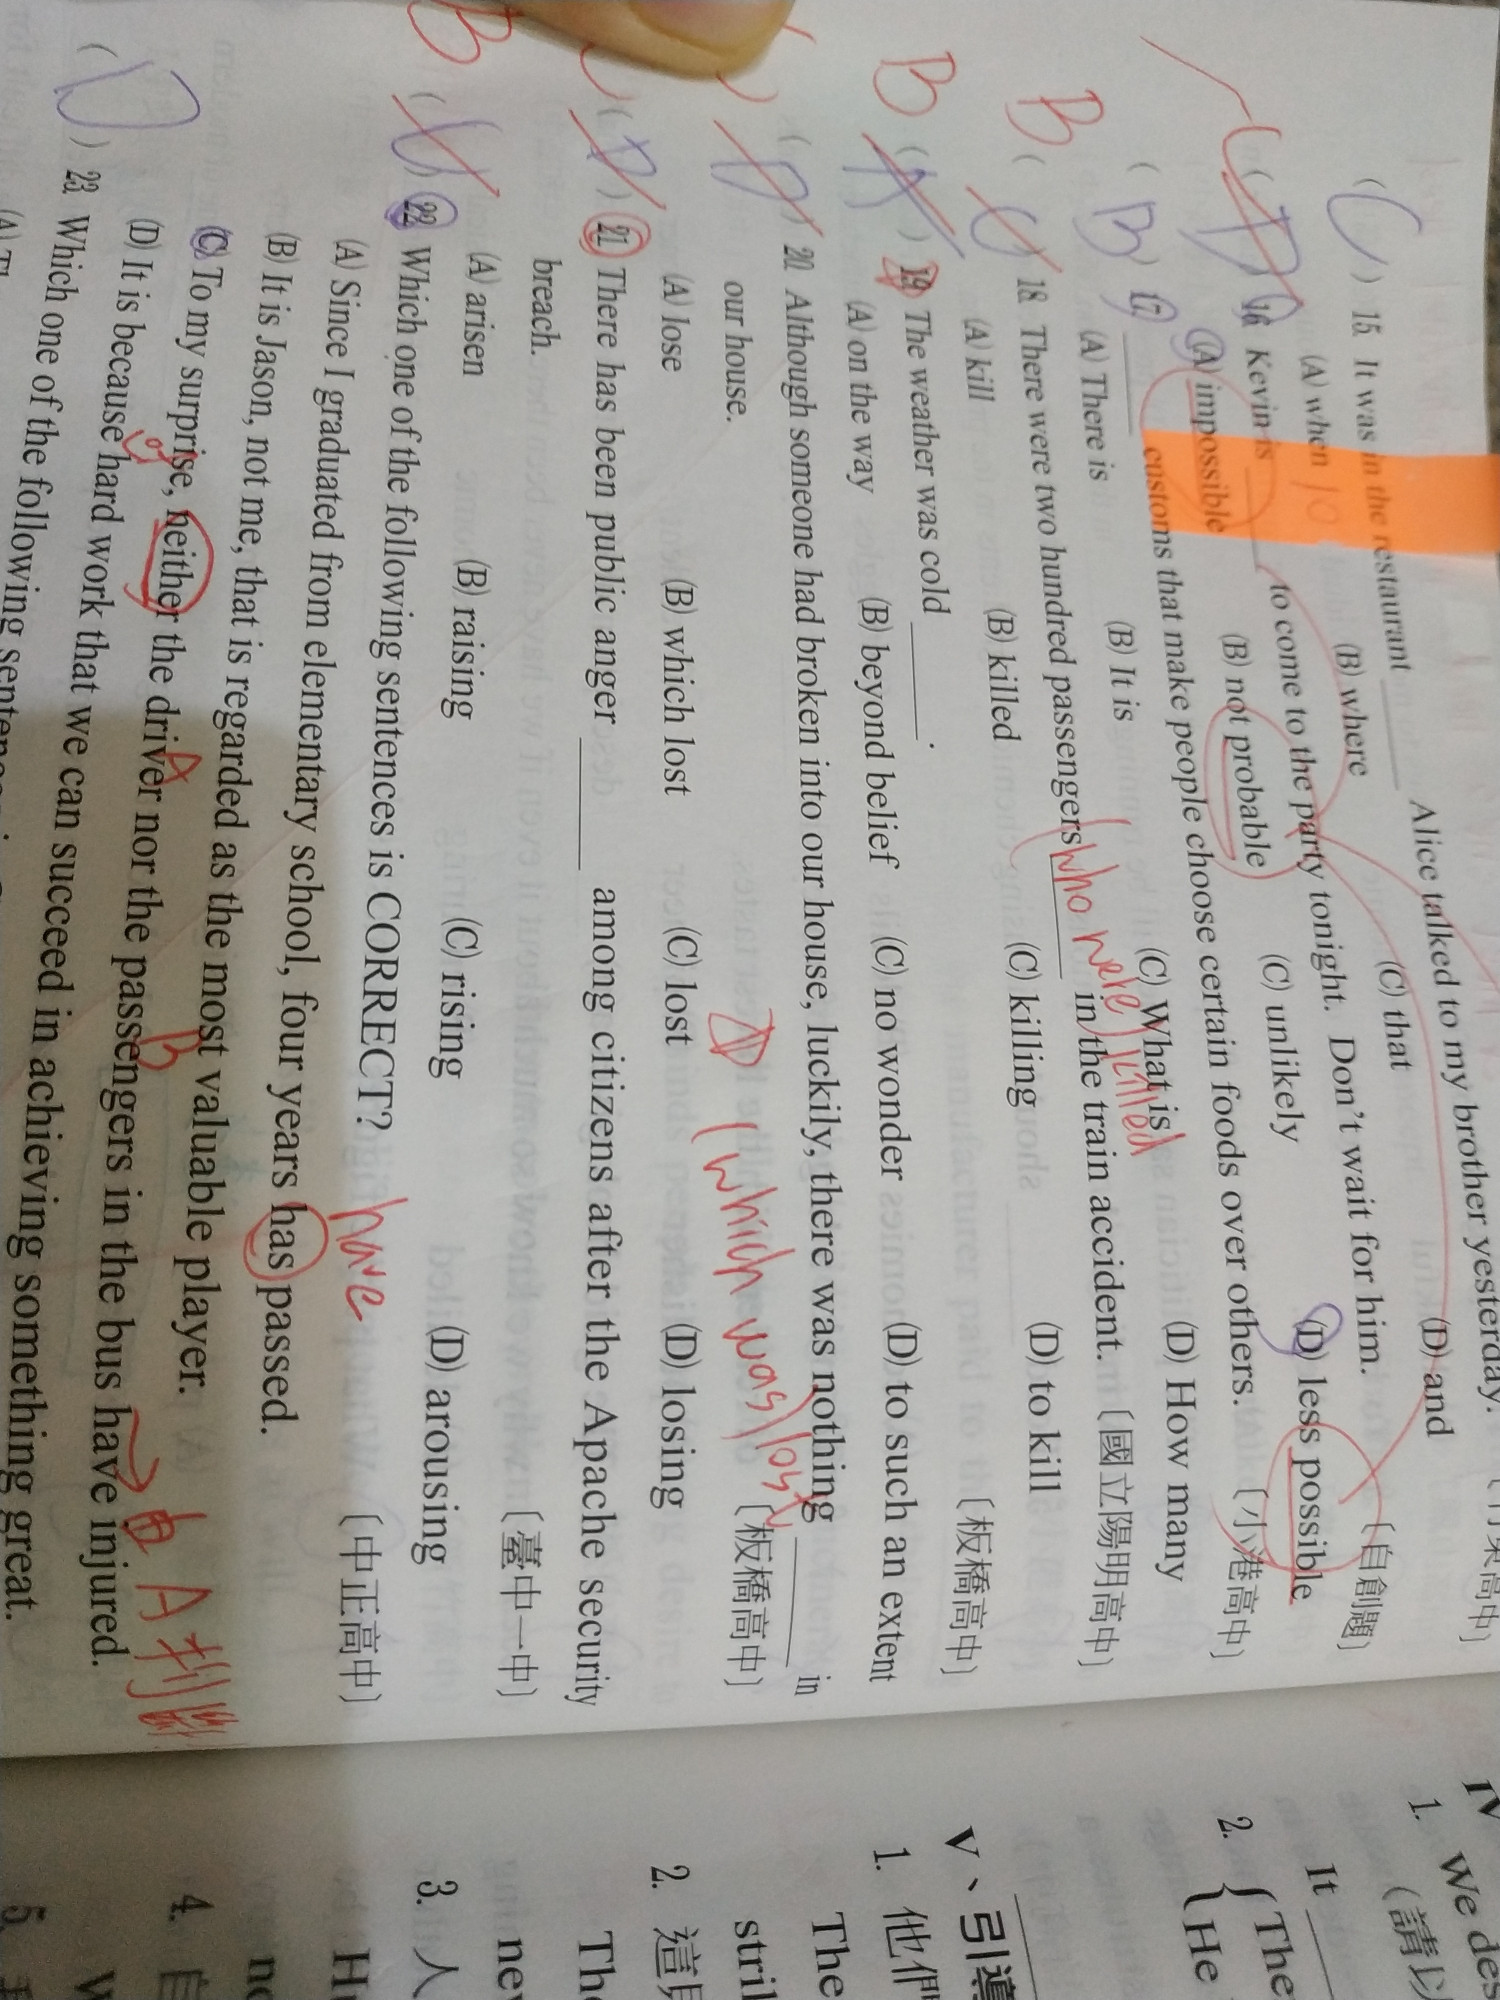 (C) 15. It was in the restaurant ______ Alice talked to my brother yesterday.
(A) when (B) where (C) that (D) and
〔自創題〕
C (D) 16. Kevin is ______ to come to the party tonight. Don't wait for him.
(A) impossible (B) not probable (C) unlikely (D) less possible
〔小港高中〕
(B) 17. ______ customs that make people choose certain foods over others.
(A) There is (B) It is (C) What is (D) How many
who were killed
B (C) 18. There were two hundred passengers ______ in the train accident. 〔國立陽明高中〕
(A) kill (B) killed (C) killing (D) to kill
B (A) 19. The weather was cold ______.
〔板橋高中〕
(A) on the way (B) beyond belief (C) no wonder (D) to such an extent
(D) 20. Although someone had broken into our house, luckily, there was nothing ______ in
our house.
which was lost
〔板橋高中〕
(A) lose (B) which lost (C) lost (D) losing
(D) 21. There has been public anger ______ among citizens after the Apache security
breach.
〔臺中一中〕
(A) arisen (B) raising (C) rising (D) arousing
B (C) 22. Which one of the following sentences is CORRECT?
〔中正高中〕
have
(A) Since I graduated from elementary school, four years has passed.
(B) It is Jason, not me, that is regarded as the most valuable player.
(C) To my surprise, neither the driver nor the passengers in the bus have injured.
A B
of
(D) It is because hard work that we can succeed in achieving something great.
(D) 23. Which one of the following
IV
1. We des
(請以
It
2. The
He
V、引導
1. 他們
The
2.
stril
The
3. 人
ne
H
4.
no
5.
W